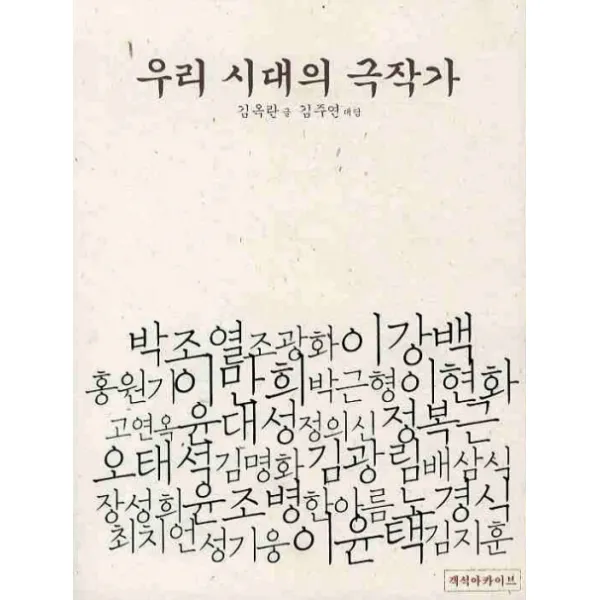 우리 시대의 극작가
김옥란 글 김주연 대담
박조열 조광화 이강백
홍원기 이만희 박근형 이현화
고연옥 윤대성 정의신 정복근
오태석 김명화 김광림 배삼식
장성희 윤조병 한아름 노경식
최치언 성기웅 이윤택 김지훈
객석아카이브